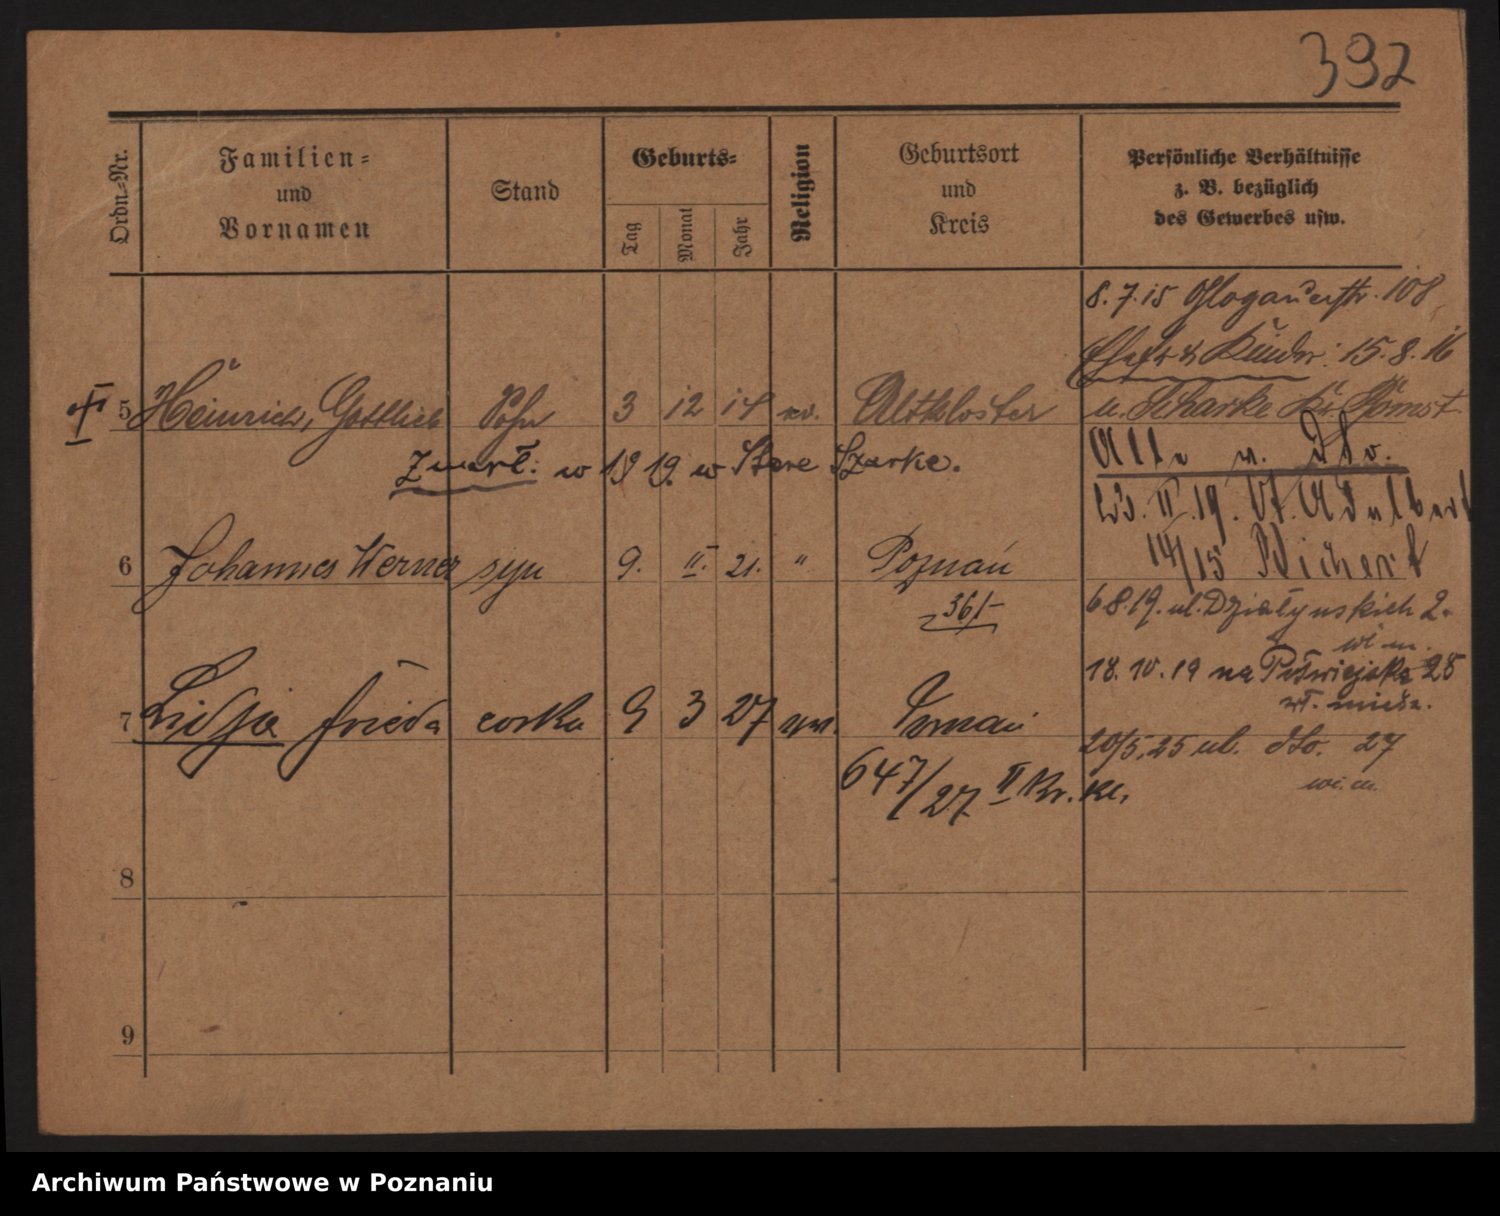 392
Ordn.=Nr.
Familien=
und
Vornamen
Stand
Geburts=
Tag
Monat
Jahr
Religion
Geburtsort
und
Kreis
Persönliche Verhältnisse
z. B. bezüglich
des Gewerbes usw.
8.7.15 Glogauerstr. 108
Ehefr & Kinder: 15.8.16
5 Heinrich, Gottlieb Sohn 3 12 14 ev. Altkloster
n. Scharke Kr. Bomst
Zmarł: w 1919. w Stare Szarke.
Alle v. Dto.
II. 19. St. Adalbert
14/15
6 Johannes Werner syn 9. II. 21. " Poznań
36/-
6 8.19. ul. Działyńskich 2.
18.10.19 na Półwiejska 28
7 Lidja Frieda corka 9 3 27 ew. Poznań
20/5.25 ul. dto. 27
647/27 II Kr. kl.
8
9
Archiwum Państwowe w Poznaniu